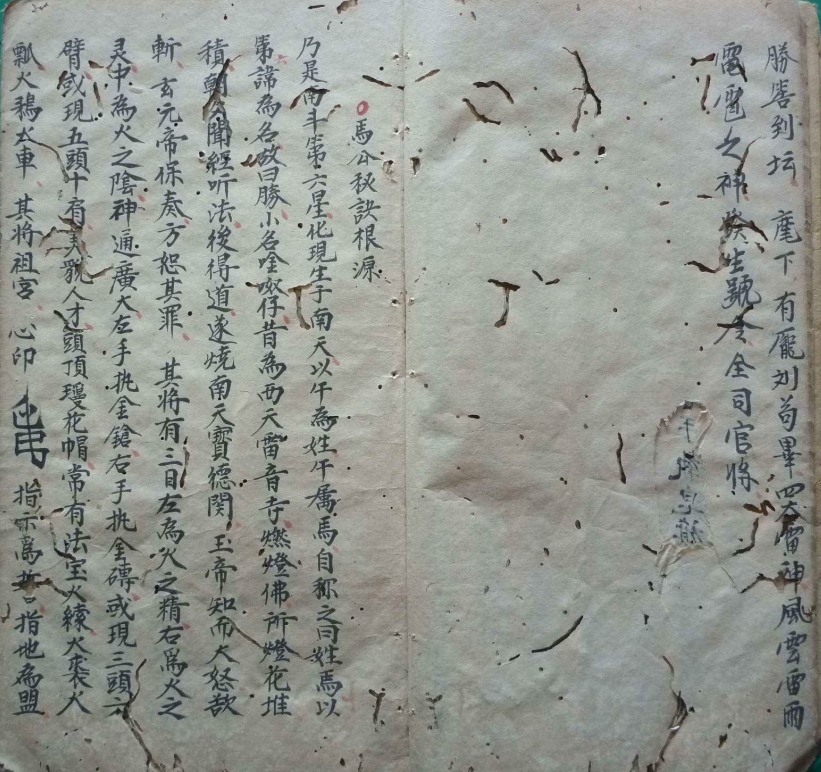 勝善到坛　麾下有龐刘苟畢四大雷神風雲雷雨
電雹之神發生號令全司官将
馬公秘訣根源
乃是南斗第六星化現生于南天以午為姓午属馬自称之曰姓馬以
第諱為名故曰勝小名哙啝仔昔為西天雷音寺燃燈佛所燈花堆
積朝夕聞經听法後得道遂燒南天寳德関玉帝知而大怒欲
斬玄元帝保奏方恕其罪　其将有三目左為火之精右為火之
灵中為火之陰神通廣大左手执金鎗右手执金磚或現三頭六
臂或現五頭十有美貌人才頭頂瓊花帽常有法宝火繩火裘火
瓢火鵝火車　其将祖宮　心印　指示為哲口指地為盟